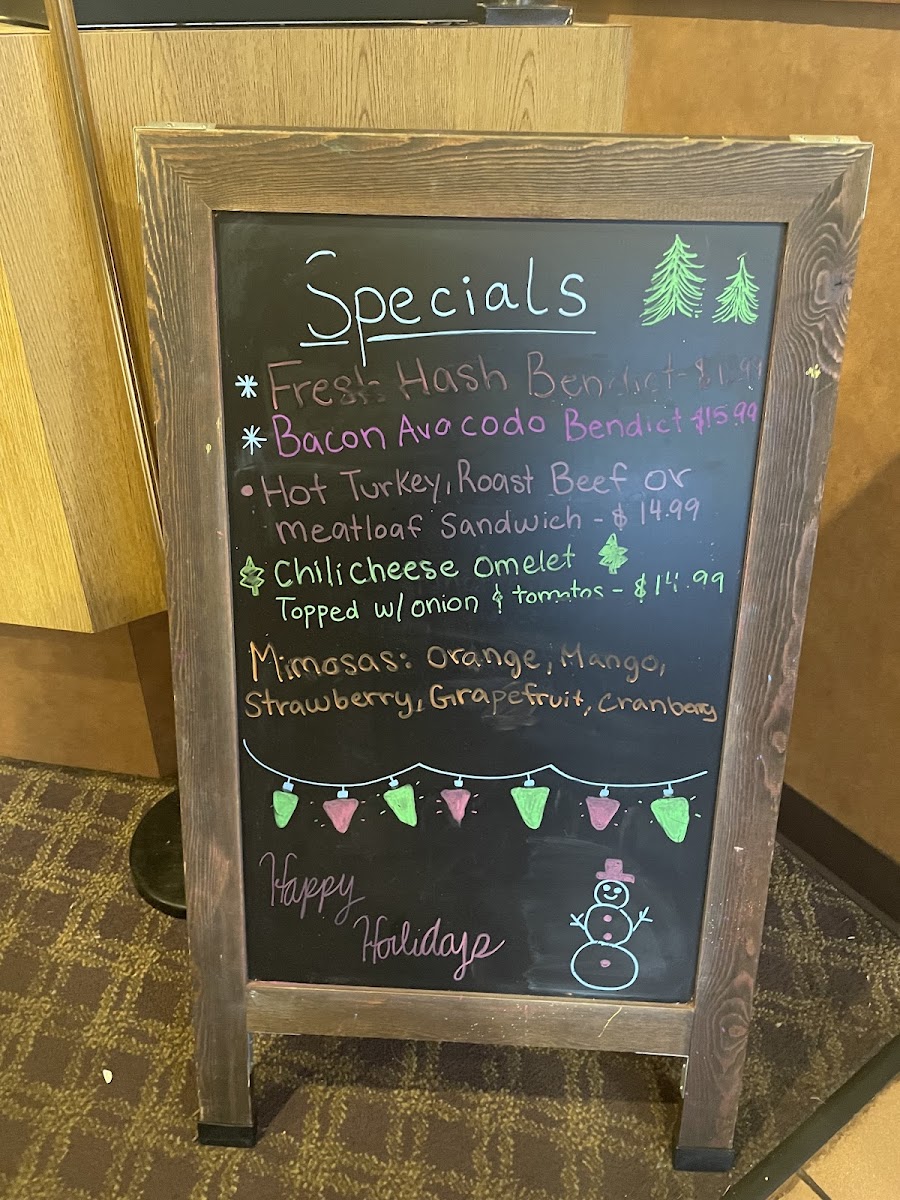 Specials
* Fresh Hash Bendict-
* Bacon Avacodo Bendict $15.99
• Hot Turkey, Roast Beef or
meatloaf Sandwich - $14.99
Chilicheese omelet
Topped w/ onion & tomatos - $14.99
Mimosas: Orange, Mango,
Strawberry, Grapefruit, Cranberry
Happy
Holidays